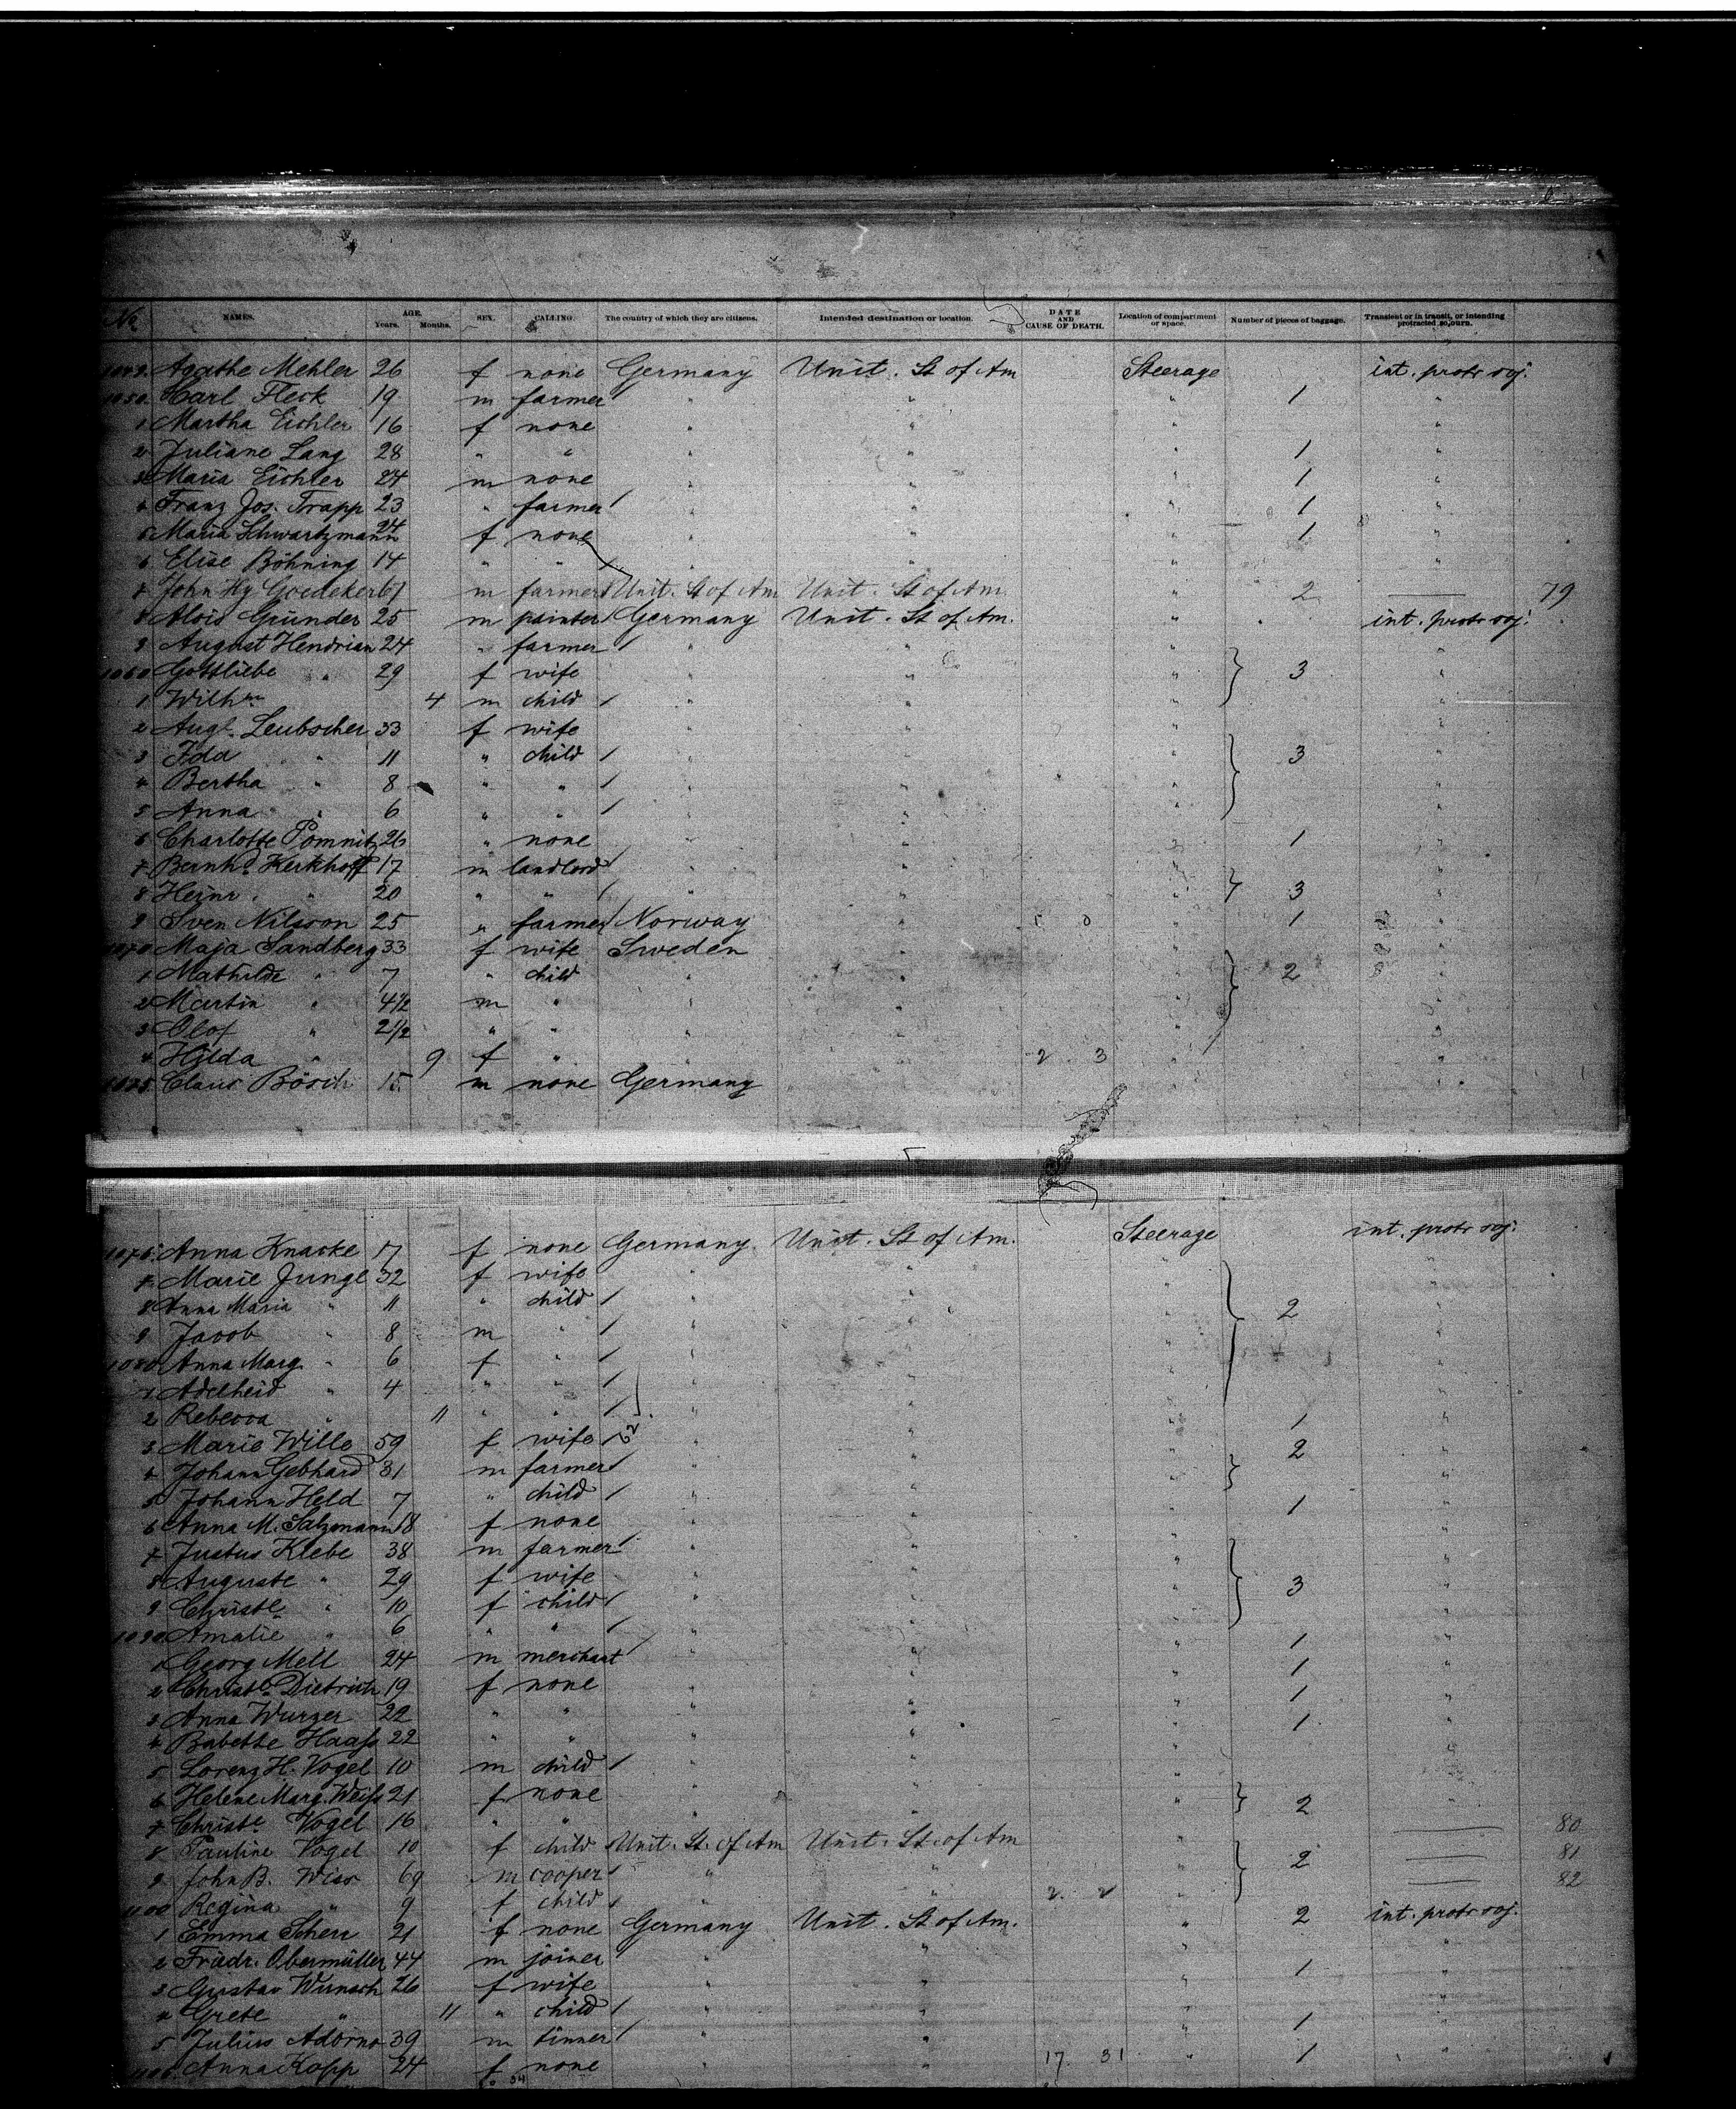 No. NAMES. AGE. Years. Months. SEX. CALLING. The country of which they are citizens. Intended destination or location. DATE AND CAUSE OF DEATH. Location of compartment or space. Number of pieces of baggage. Transient or in transit, or intending protracted sojourn.
1049. Agathe Mehler 26 f none Germany Unit. St of Am Steerage int. protr soj.
1050. Karl Fleck 19 m farmer " " " 1 "
1 Martha Eichler 16 f none " " " "
2 Juliane Lang 28 " " " " " 1 "
3 Maria Eichler 24 m none " " " 1 "
4 Franz Jos. Trapp 23 " farmer " " " 1 "
5 Maria Schwartzmann 24 f none " " " 1 "
6 Elise Böhning 14 " " " " " "
7 John Hy Goedeker 67 m farmer Unit. St of Am Unit. St of Am. " 2 79
8 Alois Gründer 25 m painter Germany Unit. St of Am. " int. protr soj.
9 August Hendrian 24 " farmer " " " "
1060 Gottliebe " 29 f wife " " " 3 "
1 Wilhm 4 m child " " " "
2 Augt. Leubscher 33 f wife " " " "
3 Ida " 11 " child " " " 3 "
4 Bertha " 8 " " " " " "
5 Anna " 6 " " " " " "
6 Charlotte Pomnitz 26 " none " " " 1 "
7 Bernhd. Kerkhoff 17 m landlord " " " "
8 Heinr. " 20 " " " " " 3 "
9 Sven Nilsson 25 " farmer Norway " " 1 "
1070 Maja Sandberg 33 f wife Sweden " " "
1 Mathilde " 7 " child " " " 2 "
2 Martin " 4½ m " " " " "
3 Olof " 2½ " " " " " "
4 Hilda " 9 f " " " 2 3 " "
1075 Claus Bösch 15 m none Germany "
1076. Anna Knacke 17 f none Germany. Unit. St of Am. Steerage int. protr soj.
7 Marie Junge 32 f wife " " " "
8 Anna Maria " 11 " child " " " 2 "
9 Jacob " 8 m " " " " "
1080 Anna Marg. " 6 f " " " " "
1 Adelheid " 4 " " " " " "
2 Rebecca " 11 " " " " " 1 "
3 Marie Wille 59 f wife " " " 2 "
4 Johann Gebhard 31 m farmer " " " "
5 Johann Held 7 " child " " " 1 "
6 Anna M. Salzmann 18 f none " " " "
7 Justus Klebe 38 m farmer " " " "
8 Auguste " 29 f wife " " " 3 "
9 Christe " 10 f child " " " "
1090 Amalie " 6 " " " " " 1 "
1 Georg Mell 24 m merchant " " " 1 "
2 Christe Dietrich 19 f none " " " 1 "
3 Anna Wurzer 22 " " " " " 1 "
4 Babette Haass 22 " " " " " "
5 Lorenz H. Vogel 10 m child " " " "
6 Helene Marg. Weiss 21 f none " " " 2 "
7 Christe Vogel 16 " " " " "
8 Pauline Vogel 10 f child Unit. St. of Am Unit. St. of Am " 80
9 John B. Wiss 69 m cooper " " " 2 81
1100 Regina " 9 f child " " 2 2 " 82
1 Emma Scherr 21 f none Germany Unit. St of Am. " 2 int. protr soj.
2 Friedr. Obermüller 44 m joiner " " " 1 "
3 Gustav Wunsch 26 f wife " " " "
4 Grete " 11 " child " " " 1 "
5 Julius Adorno 39 m tinner " " " 1 "
1106. Anna Kopp 24 f none " " 17 31 "
34